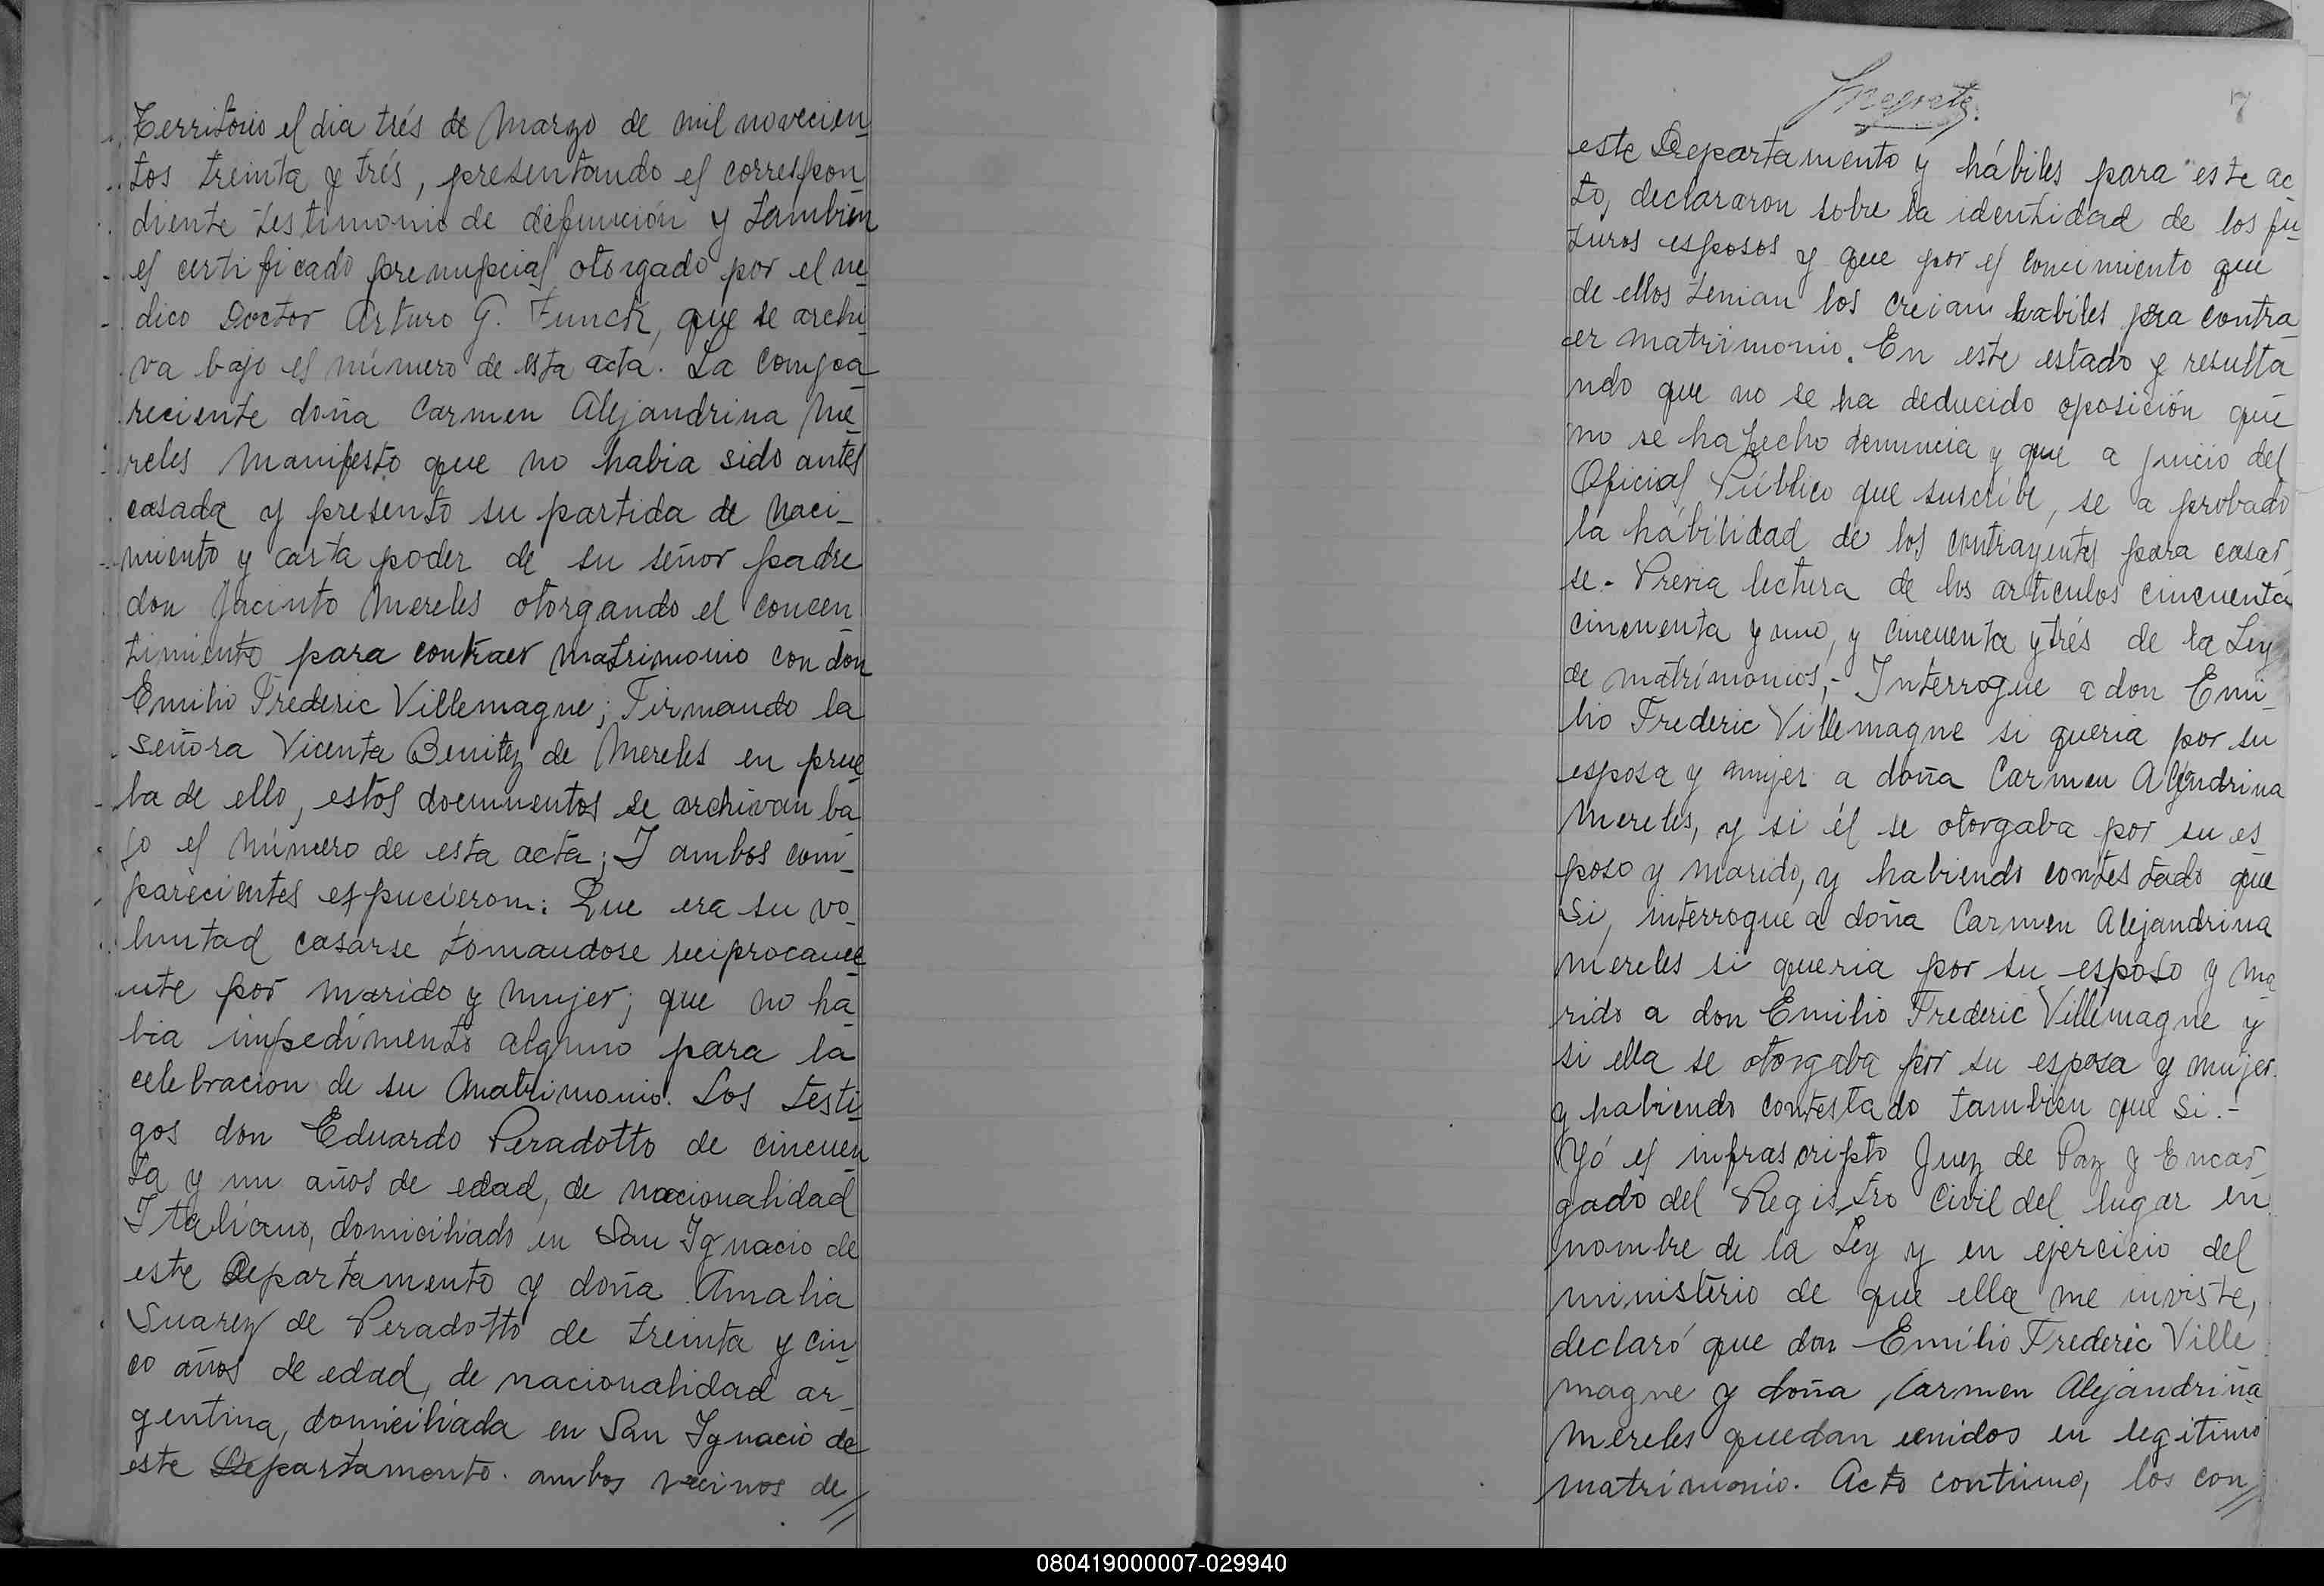 Territorio el dia trés de Marzo de mil novecien_
tos treinta y trés, presentando el correspon_
diente testimonio de defunción y tambien
el certificado prenupcial otorgado por el me_
dico Doctor Arturo G. Funck, que se archi_
va bajo el número de esta acta. La compa_
reciente doña Carmen Alejandrina Me_
reles Manifesto que no habia sido antes
casada y presento su partida de Naci_
miento y carta poder de su señor padre
don Jacinto Mereles otorgando el concen_
timiento para contraer matrimonio con don
Emilio Frederic Villemagne; Firmando la
señora Vicenta Benitez de Mereles en prue_
ba de ello, estos documentos se archivan ba_
jo el número de esta acta; I ambos com_
parecientes expucierom: Que era su vo_
luntad casarse tomandose reciprocame_
nte por marido y mujer; que no ha_
bia impedimento alguno para la
celebracion de su Matrimonio. Los testi_
gos don Eduardo Peradotto de cincuen_
ta y un años de edad, de nacionalidad
Italiano, domiciliado en San Ignacio de
este Departamento y doña Amalia
Suarez de Peradotto de treinta y cin_
co años de edad, de nacionalidad ar_
gentina, domiciliada en San Ignacio de
este Departamento. ambos vecinos de//
7
este Departamento y hábiles para este ac_
to, declararon sobre la identidad de los fu_
turos esposos y que por el conocimiento que
de ellos tenian los creian habiles pra contra_
er matrimonio. En este estado y resulta_
ndo que no se ha deducido oposición que
no se ha hecho denuncia y que a juicio del
Oficial Público que suscribe, se a probado
la hábilidad de los contrayentes para casar_
se.- Previa lectura de los articulos cincuenta
cincuenta y uno, y cincuenta y trés de la Ley
de matrimonios,- Interrogue a don Emi_
lio Frederic Villemagne si queria por su
esposa y mujer a doña Carmen Alejandrina
Mereles, y si él se otorgaba por su es_
poso y marido, y habiendo contestado que
Si, interrogué a doña Carmen Alejandrina
mereles si queria por su esposo y ma_
rido a don Emilio Frederic Villemagne y
si ella se otorgaba por su esposa y mujer.
y habiendo contestado tambien que si.-
Yó el infrascripto Juez de Paz y Encar_
gado del Registro Civil del lugar en
nombre de la Ley y en ejercicio del
ministerio de que ella me inviste,
declaró que don Emilio Frederic Ville_
magne y doña Carmen Alejandrina
Mereles quedan unidos en legitimo
matrimonio. Acto continuo, los con//
080419000007-029940